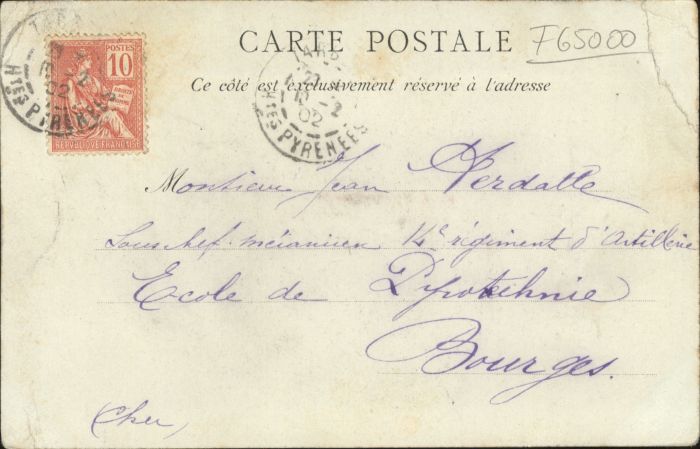 CARTE POSTALE
F65000
Ce côté est exclusivement réservé à l'adresse
POSTES
10
REPUBLIQUE FRANÇAISE
TARB
02
HTES PYRENEES
TARB
02
HTES PYRENEES
Monsieur Jean Verdalle
Sous chef mécanicien 14e régiment d'Artillerie
Ecole de Pyrotechnie
Bourges.
Cher,